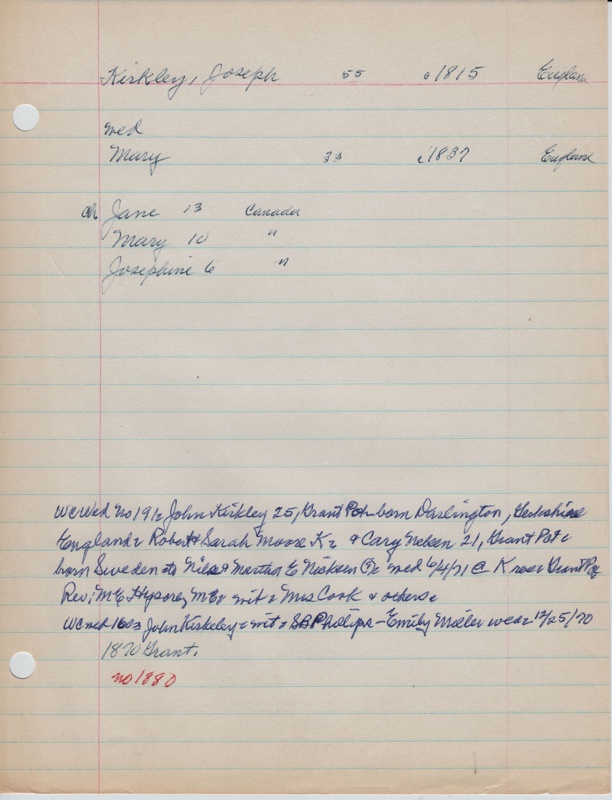 Kirkley, Joseph 55 c1815 England
wed
Mary 33 c1837 England
ch Jane 13 Canada
Mary 10 "
Josephine 6 "
WC Wed No 191½ John Kirkley 25, Grant Pct born Darlington,
England Robert & Sarah Moore K & Cary 21, Grant Pct
born Sweden to Nils & Martha E wed 6/4/71 @ Grant Pct
Rev: ME wit Mrs Cook & others
WC wed 1603 John Kirkeley wit SB Philips - Emily wed 12/25/70
1870 Grant.
no 1880